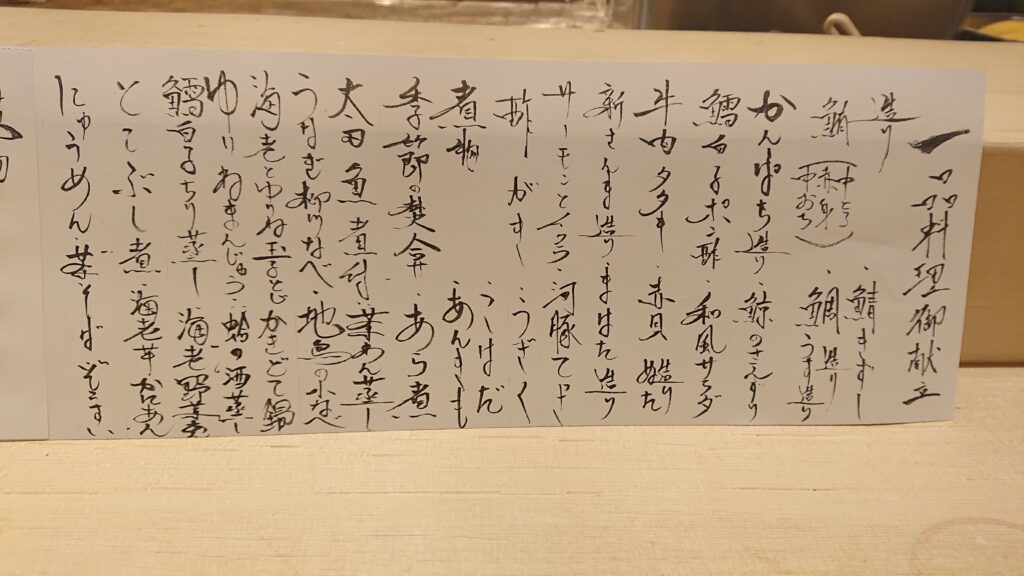 一品料理御献立
造り ・鯖きずし
鮪(中とろ 赤身 中おち)・鯛 造り うす造り
かんぱち造り・鯨のさえずり
鱈白子ポン酢・和風サラダ
牛肉タタキ 赤貝 造り ぬた
新さんま造り まはた造り
サーモンとイクラ・河豚てっさ
酢がき・うざく
・こはだ
煮物 あんきも
季節の焚合・あら煮
太田魚煮付・菜あん蒸し
うなぎ柳川なべ・地鳥の小なべ
海老とゆりね玉子とじ かきどて鍋
ゆりねまんじゅう・蛤の酒蒸し
鱈白子ちり蒸し 海老野菜
とこぶし煮・海老芋かにあん
にゅうめん 茶そば ぞうすい